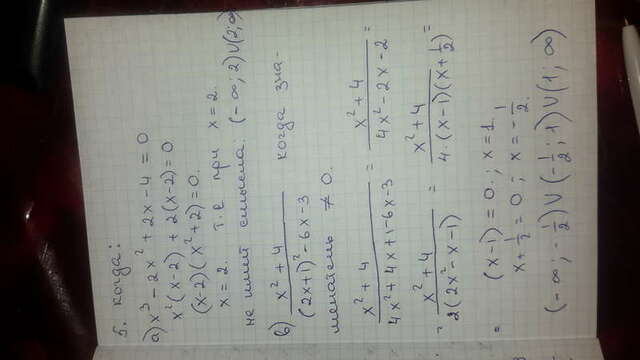 5. когда:
а) x³ - 2x² + 2x - 4 = 0
x²(x-2) + 2(x-2) = 0
(x-2)(x²+2) = 0.
x = 2. т.е при x = 2.
не имеет смысла: (-∞; 2) ∪ (2; ∞)
в) (x²+4)/((2x+1)² - 6x - 3) когда зна-
менатель ≠ 0.
(x²+4)/(4x²+4x+1-6x-3) = (x²+4)/(4x²-2x-2) =
= (x²+4)/(2(2x²-x-1)) = (x²+4)/(4·(x-1)(x+½)) =
= (x-1) = 0; x = 1.
x+½ = 0; x = -½.
(-∞; -½) ∪ (-½; 1) ∪ (1; ∞)